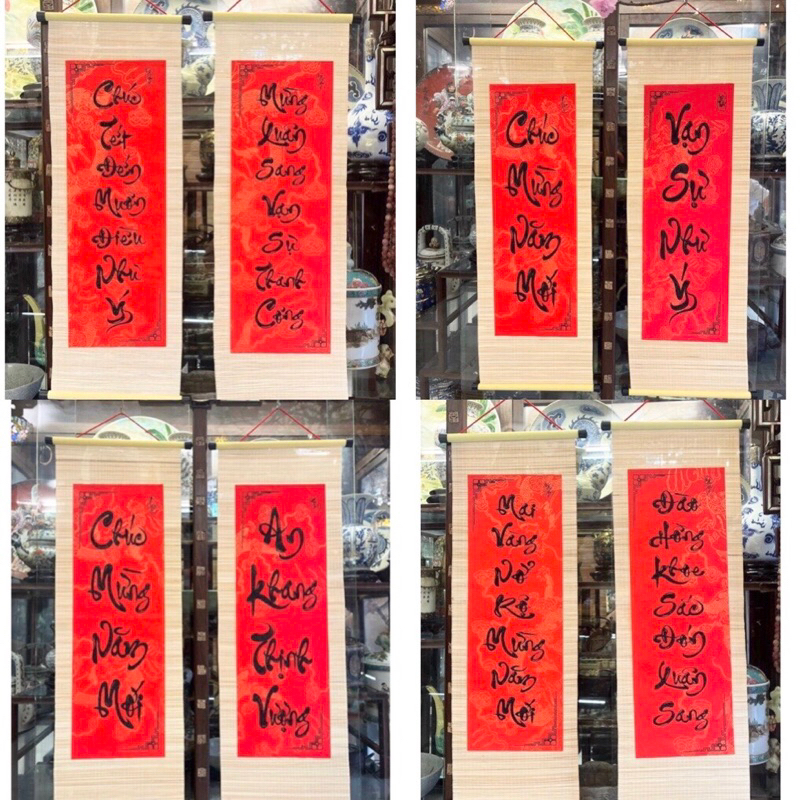 Chúc
Tết
Đến
Muôn
Điều
Như
Ý
Mừng
Xuân
Sang
Vạn
Sự
Thành
Công
Chúc
Mừng
Năm
Mới
Vạn
Sự
Như
Ý
Chúc
Mừng
Năm
Mới
An
Khang
Thịnh
Vượng
Mai
Vàng
Nở
Rộ
Mừng
Năm
Mới
Đào
Hồng
Khoe
Sắc
Đón
Xuân
Sang